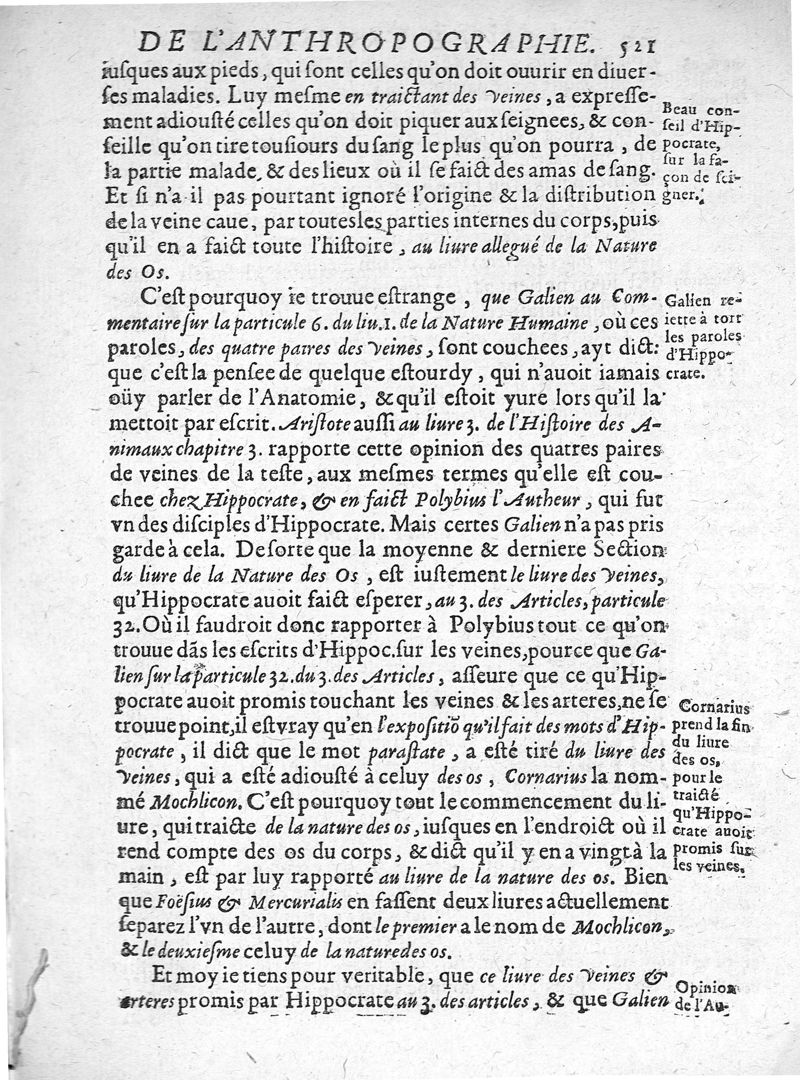 DE L'ANTHROPOGRAPHIE. 521
iusques aux pieds, qui sont celles qu'on doit ouurir en diuer-
ses maladies. Luy mesme en traictant des Veines, a expresse-
ment adiousté celles qu'on doit piquer aux seignees, & con-
seille qu'on tire tousiours du sang le plus qu'on pourra, de
la partie malade, & des lieux où il se faict des amas de sang.
Et si n'a il pas pourtant ignoré l'origine & la distribution
de la veine caue, par toutes les parties internes du corps, puis
qu'il en a faict toute l'histoire, au liure allegué de la Nature
des Os.
Beau con-
seil d'Hip-
pocrate,
sur la fa-
çon de sei-
gner.
C'est pourquoy ie trouue estrange, que Galien au Com-
mentaire sur la particule 6. du liu. 1. de la Nature Humaine, où ces
paroles, des quatre paires des Veines, sont couchees, ayt dict:
que c'est la pensee de quelque estourdy, qui n'auoit iamais
oüy parler de l'Anatomie, & qu'il estoit yure lors qu'il la
mettoit par escrit. Aristote aussi au liure 3. de l'Histoire des A-
nimaux chapitre 3. rapporte cette opinion des quatres paires
de veines de la teste, aux mesmes termes qu'elle est cou-
chee chez Hippocrate, & en faict Polybius l'Autheur, qui fut
vn des disciples d'Hippocrate. Mais certes Galien n'a pas pris
garde à cela. De sorte que la moyenne & derniere Section
du liure de la Nature des Os, est iustement le liure des Veines,
qu'Hippocrate auoit faict esperer, au 3. des Articles, particule
32. Où il faudroit donc rapporter à Polybius tout ce qu'on
trouue dãs les escrits d'Hippoc. sur les veines, pource que Ga-
lien sur la particule 32. du 3. des Articles, asseure que ce qu'Hip-
pocrate auoit promis touchant les veines & les arteres, ne se
trouue point, il est vray qu'en l'expositiõ qu'il fait des mots d'Hip-
pocrate, il dict que le mot parastate, a esté tiré du liure des
Veines, qui a esté adiousté à celuy des os, Cornarius la nom-
mé Mochlicon. C'est pourquoy tout le commencement du li-
ure, qui traicte de la nature des os, iusques en l'endroict où il
rend compte des os du corps, & dict qu'il y en a vingt à la
main, est par luy rapporté au liure de la nature des os. Bien
que Foësius & Mercurialis en fassent deux liures actuellement
separez l'vn de l'autre, dont le premier a le nom de Mochlicon,
& le deuxiesme celuy de la nature des os.
Galien re-
iette à tort
les paroles
d'Hippo-
crate.
Cornarius
prend la fin
du liure
des os,
pour le
traicté
qu'Hippo-
crate auoit
promis sur
les veines.
Et moy ie tiens pour veritable, que ce liure des Veines &
arteres promis par Hippocrate au 3. des articles, & que Galien
Opinion
de l'Au-